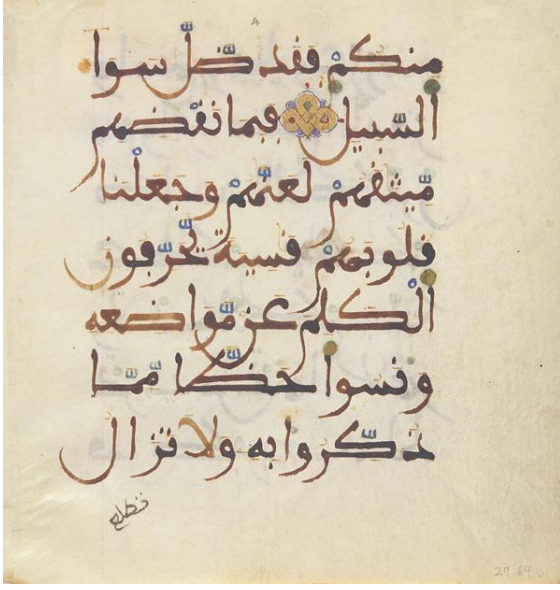 منكم فقد ضلّ سوا
السّبيل فبما نقضهم
مّيثقهم لعنّهم وجعلْنا
قلوبهم قسية يحّرفون
الْكلم عن مّواضعه
ونسوا حظّا مّمّا
ذكّروا به ولا تزال
تطلع